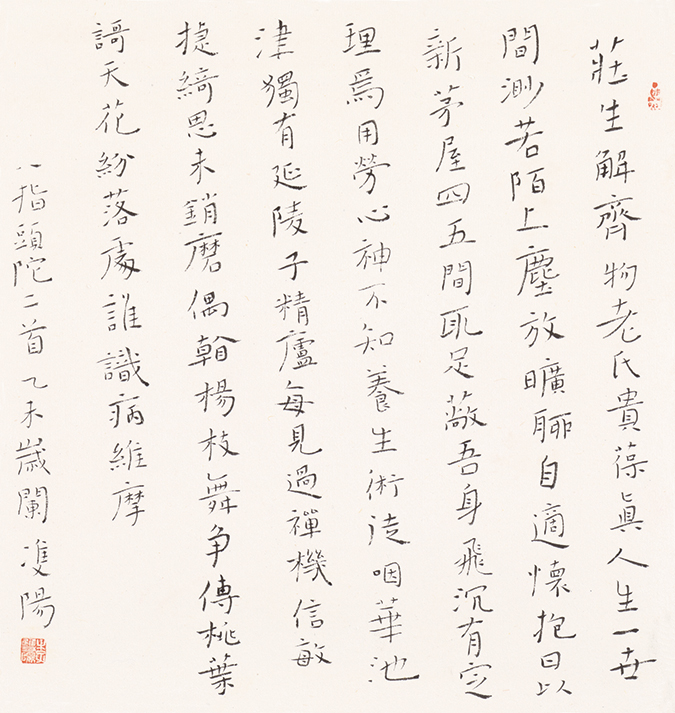 莊生解齊物老氏貴葆眞人生一世
間渺若陌上塵放曠聊自適懷抱日以
新茅屋四五間聊足蔽吾身飛沉有定
理焉用勞心神不知養生術徒咽華池
津獨有延陵子精廬每見過禪機信敏
捷綺思未鎖磨偶翰楊枝舞爭傳桃葉
謌天花紛落處誰識病維摩
八指頭陀二首乙未歲闌
陽